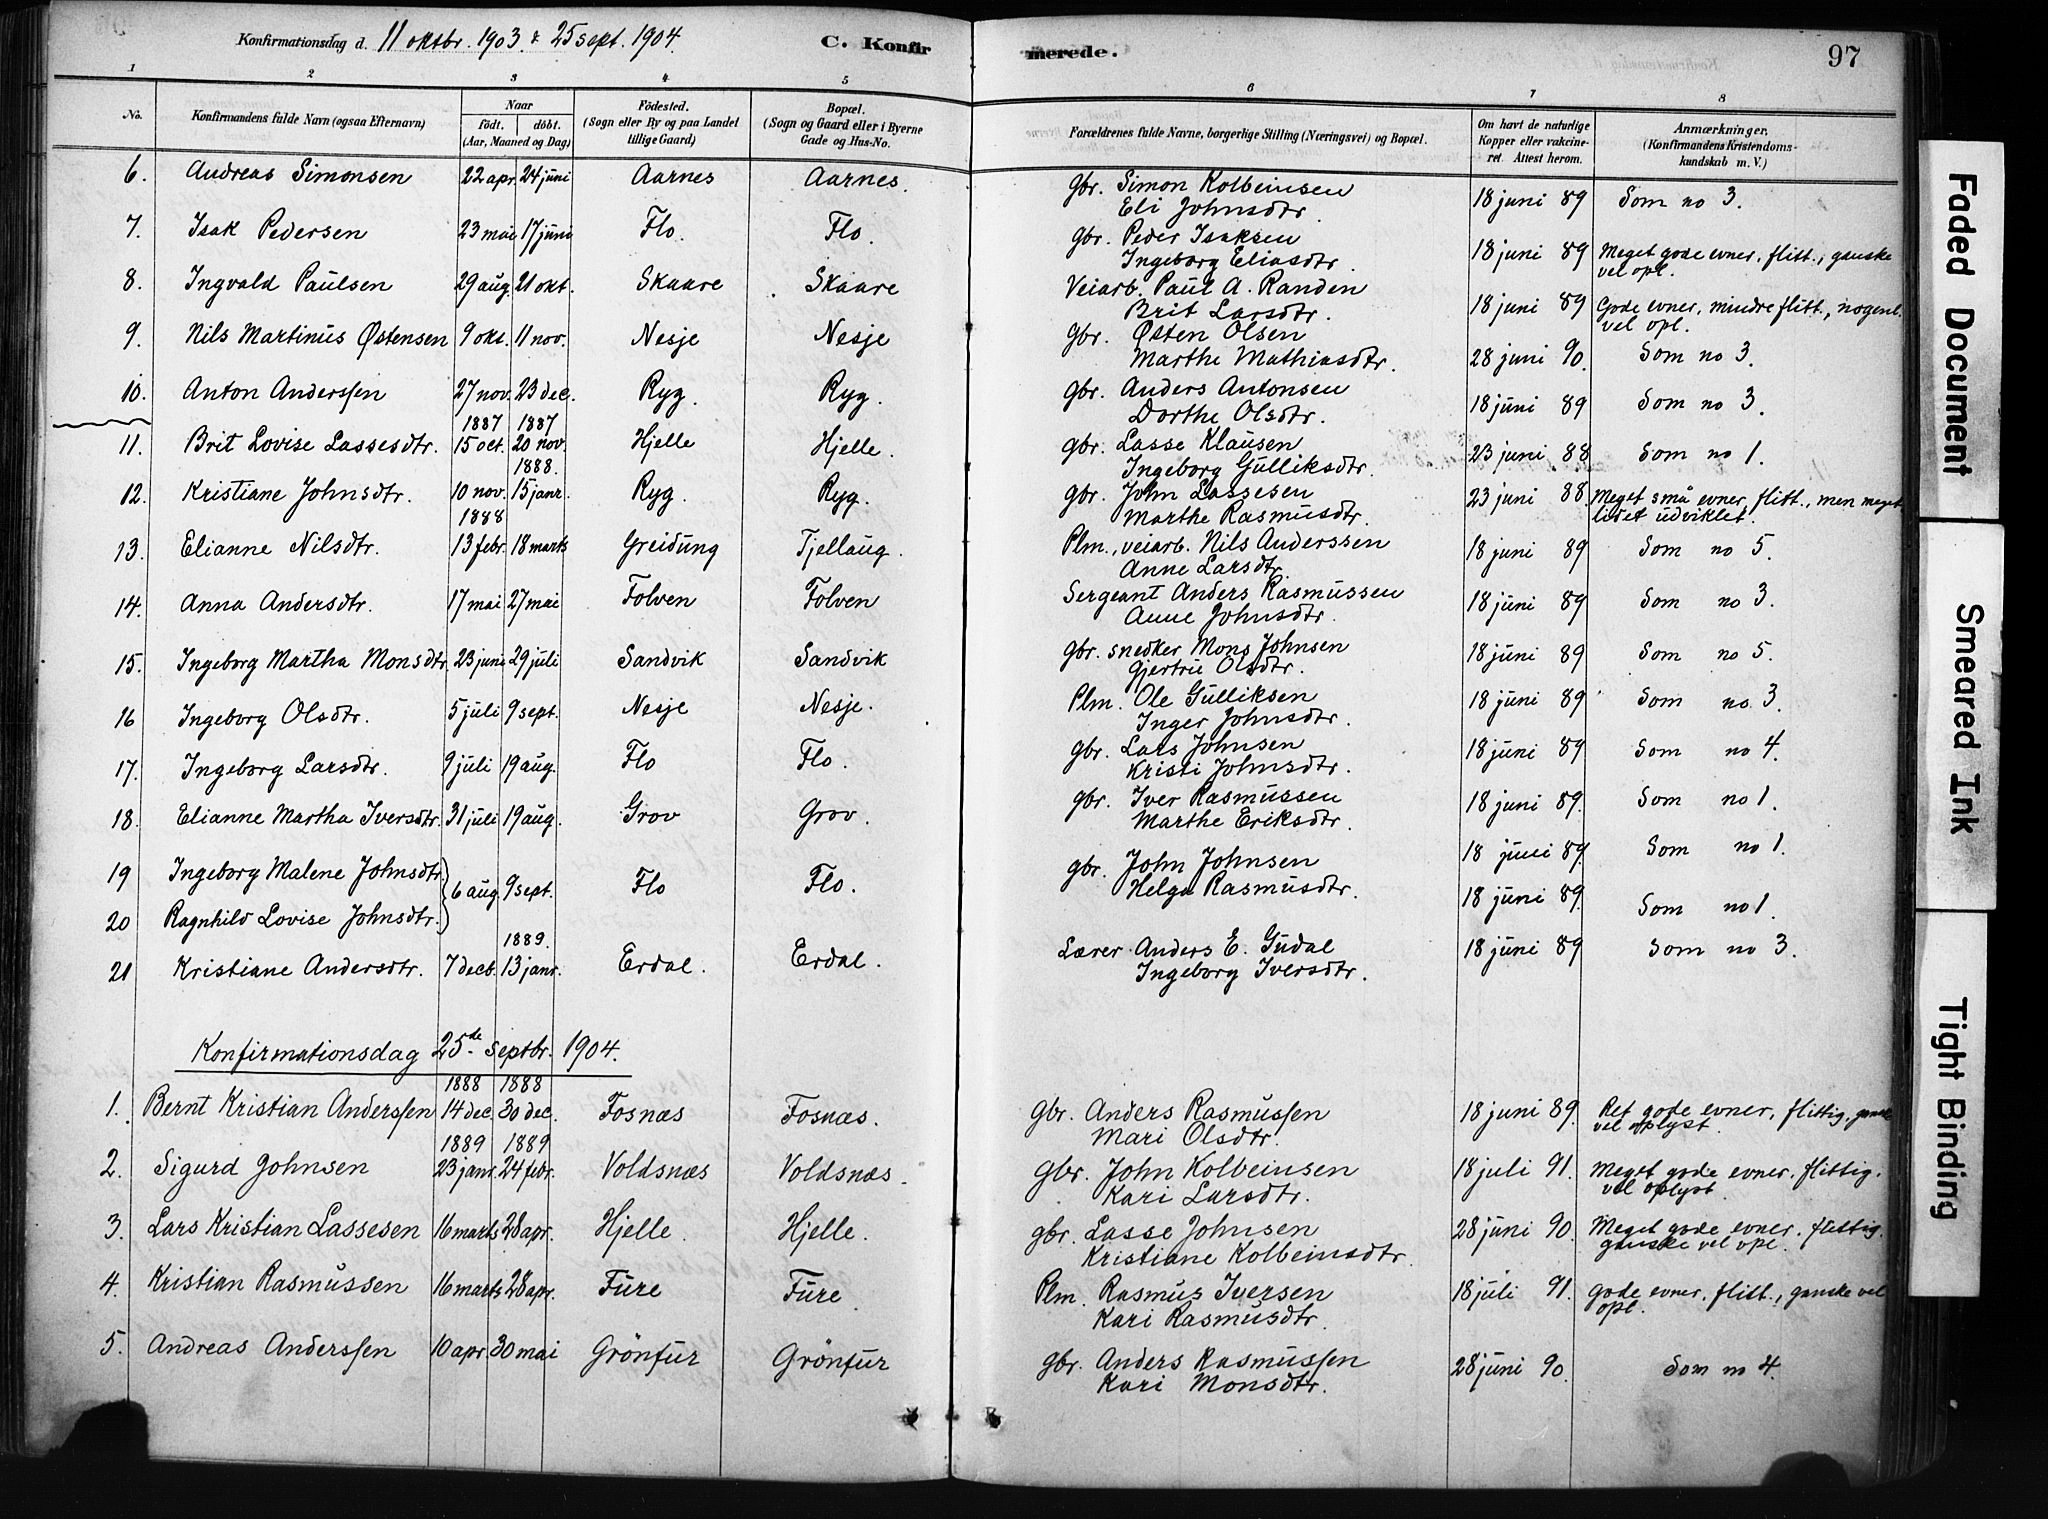 Konfirmationsdag d. 11 oktbr. 1903. & 25 sept. 1904. C. Konfirmerede. 97
1 2 3 4 5 6 7 8
No. Konfirmandens fulde Navn (ogsaa Efternavn) Naar födt. döbt. (Aar, Maaned og Dag) Födested. (Sogn eller By og paa Landet tillige Gaard) Bopæl. (Sogn og Gaard eller i Byerne Gade og Hus-No. Forældrenes fulde Navne, borgerlige Stilling (Næringsvei) og Bopæl. Om havt de naturlige Kopper eller vakcineret. Attest herom. Anmærkninger. (Konfirmandens Kristendomskundskab m. V.)
6. Andreas Simonsen 22 apr. 24 juni Aarnes Aarnes. gbr. Simon Kolbeinsen 18 juni 89 Som no 3.
Eli Johnsdtr.
7. Isak Pedersen 23 mai 17 juni Flo. Flo. gbr. Peder Isaksen 18 juni 89 Meget gode evner, flitt., ganske
Ingeborg Eliasdtr. vel opl.
8. Ingvald Paulsen 29 aug. 21 okt. Skaare Skaare Veiarb. Paul A. Randen 18 juni 89 Gode evner, mindre flitt., nogenl.
Brit Larsdtr. vel opl.
9. Nils Martinus Østensen 9 okt. 11 nov. Nesje Nesje gbr. Østen Olsen 28 juni 90. Som no 3.
Marthe Mathiasdtr.
10. Anton Anderssen 27 nov. 23 dec. Ryg. Ryg. gbr. Anders Antonsen 18 juni 89 Som no 3.
Dorthe Olsdtr.
1887 1887
11. Brit Lovise Lassesdtr. 15 oct. 20 nov. Hjelle Hjelle. gbr. Lasse Klausen 23 juni 88 Som no 1.
1888. Ingeborg Gulliksdtr.
12. Kristiane Johnsdtr. 10 nov. 15 janr. Ryg. Ryg. gbr. John Lassesen 23 juni 88. Meget små evner, flitt., men meget
1888 Marthe Rasmusdtr. lidet udviklet.
13. Elianne Nilsdtr. 13 febr. 18 marts Greidung Tjellaug. Plm., veiarb. Nils Anderssen 18 juni 89 Som no 5.
Anne Larsdtr.
14. Anna Andersdtr. 17 mai 27 mai Folven Folven Sergeant Anders Rasmussen 18 juni 89 Som no 3.
Anne Johnsdtr.
15. Ingeborg Martha Monsdtr. 23 juni 29 juli Sandvik Sandvik gbr. snedker Mons Johnsen 18 juni 89 Som no 5.
Gjertrü Olsdtr.
16 Ingeborg Olsdtr. 5 juli 9 sept. Nesje Nesje. Plm. Ole Gulliksen 18 juni 89 Som no. 3.
Inger Johnsdtr.
17. Ingeborg Larsdtr. 9 juli 19 aug. Flo Flo. gbr. Lars Johnsen 18 juni 89 Som no 4.
Kristi Johnsdtr.
18. Elianne Martha Iversdtr. 31 juli 19 aug. Grov Grov. gbr. Iver Rasmussen 18 juni 89. Som no 1.
Marthe Eriksdtr.
19 Ingeborg Malene Johnsdtr. 6 aug. 9 sept. Flo Flo. gbr. John Johnsen 18 juni 89. Som no 1.
Helga Rasmusdtr.
20 Ragnhild Lovise Johnsdtr. 18 juni 89. Som no 1.
1889.
21 Kristiane Andersdtr. 7 decb. 13 janr. Erdal. Erdal. Lærer Anders E. Gudal 18 juni 89 Som no 3.
Ingeborg Iversdtr.
Konfirmationsdag 25de septbr. 1904.
1888 1888
1. Bernt Kristian Anderssen 14 dec. 30 dec. Fosnæs Fosnæs. gbr. Anders Rasmussen 18 juni 89. Ret gode evner, flittig, ganske
Mari Olsdtr. vel oplyst.
1889 1889
2. Sigurd Johnsen 23 janr. 24 febr. Voldsnæs Voldsnæs. gbr. John Kolbeinsen 18 juli 91. Meget gode evner, flittig,
Kari Larsdtr. vel oplyst.
3. Lars Kristian Lassesen 16 marts 28 apr. Hjelle. Hjelle. gbr. Lasse Johnsen 28 juni 90. Meget gode evner, flittig,
Kristiane Kolbeinsdtr. ganske vel opl.
4. Kristian Rasmussen 16 marts 28 apr. Fure Fure. Plm. Rasmus Iversen 18 juli 91. gode evner, flitt., ganske vel
Kari Rasmusdtr. opl.
5. Andreas Anderssen 10 apr. 30 mai Grönfur Grönfur gbr. Anders Rasmussen 28 juni 90. Som no 4.
Kari Monsdtr.
Faded Document
Smeared Ink
Tight Binding